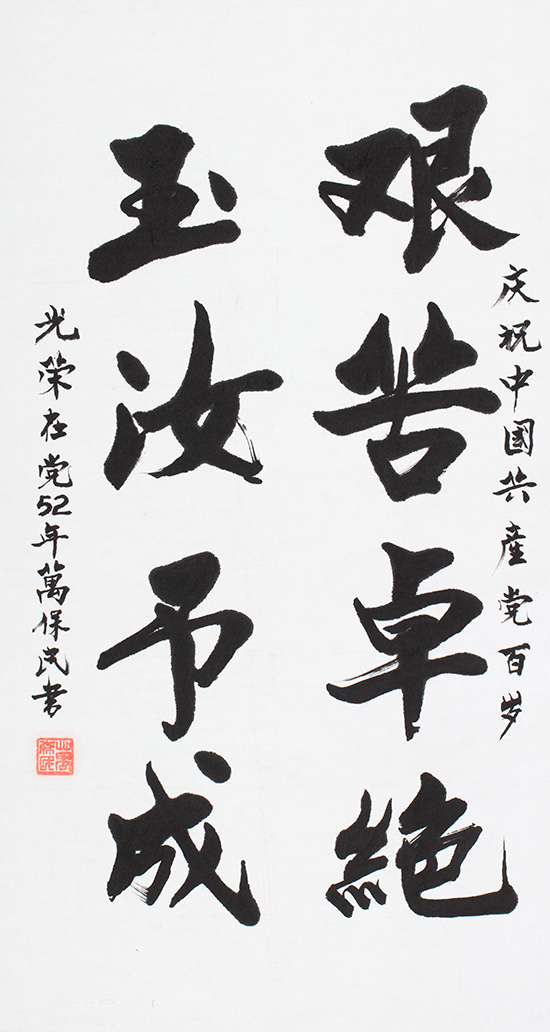 庆祝中國共産党百岁
艰苦卓絶
玉汝予成
光荣在党52年萬保民书